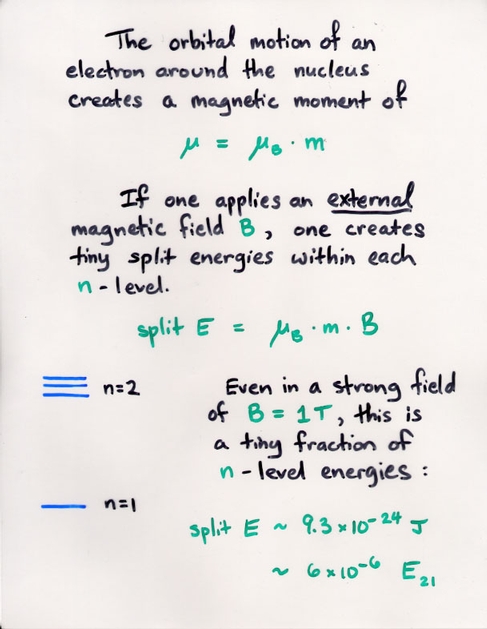 The orbital motion of an
electron around the nucleus
creates a magnetic moment of
μ = μ_B · m
If one applies an external
magnetic field B, one creates
tiny split energies within each
n-level.
split E = μ_B · m · B
n=2
Even in a strong field
of B = 1T, this is
a tiny fraction of
n-level energies:
n=1
split E ~ 9.3 × 10⁻²⁴ J
~ 6 × 10⁻⁶ E₂₁